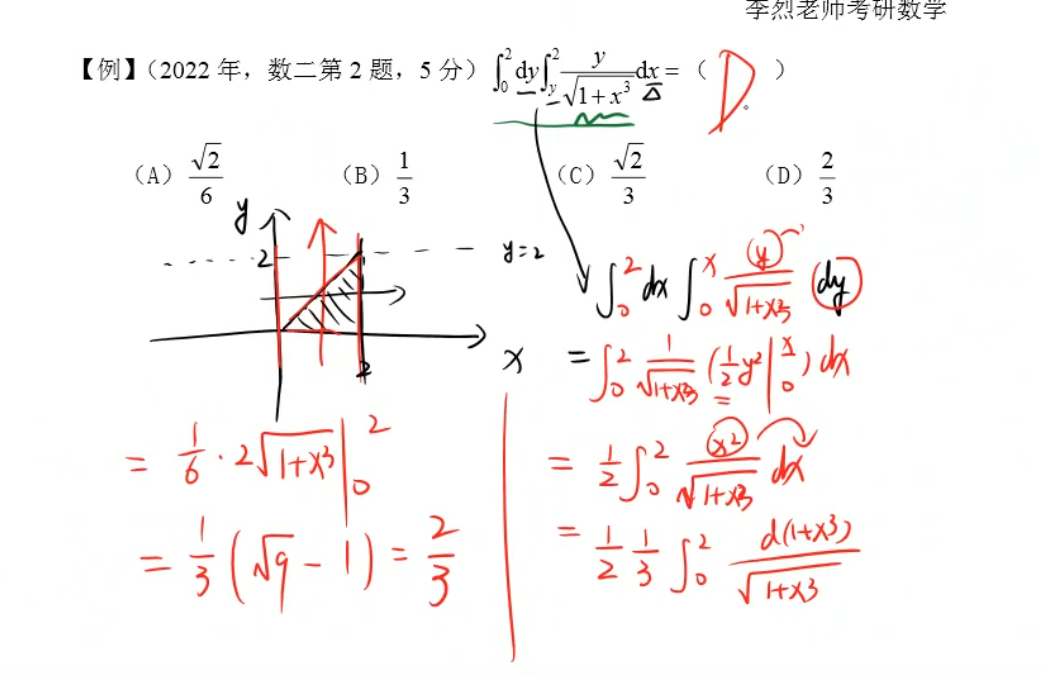 李烈老师考研数学
【例】（2022 年，数二第 2 题，5 分）∫₀² dy ∫_y² y/√(1+x³) dx =（ D ）
（A）√2/6 （B）1/3 （C）√2/3 （D）2/3
y
2
y=2
2
x
∫₀² dx ∫₀ˣ y/√(1+x³) dy
= ∫₀² 1/√(1+x³) (1/2 y² |₀ˣ) dx
= 1/2 ∫₀² x²/√(1+x³) dx
= 1/2 1/3 ∫₀² d(1+x³)/√(1+x³)
= 1/6 · 2√(1+x³) |₀²
= 1/3 (√9 − 1) = 2/3